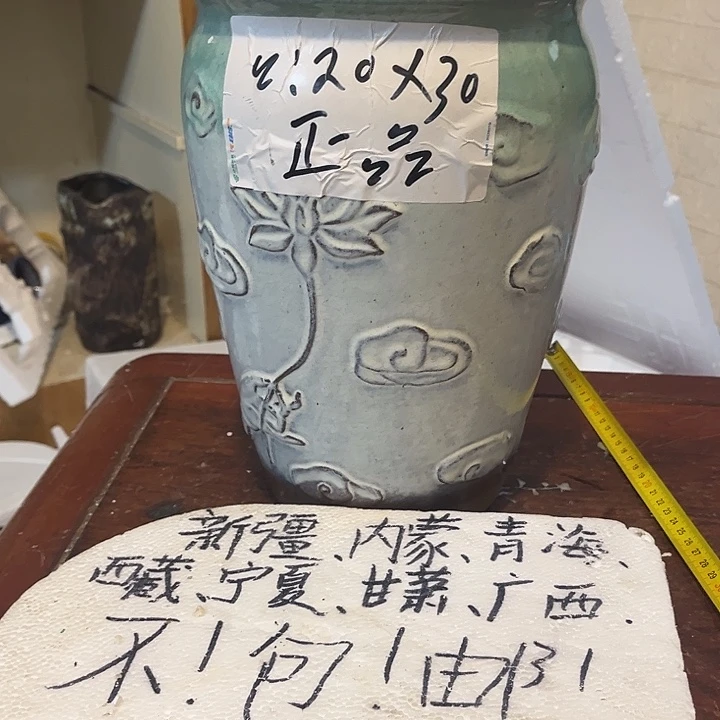 4:20×30
正品
新疆、内蒙、青海、
西藏、宁夏、甘肃、广西.
不!包!邮!